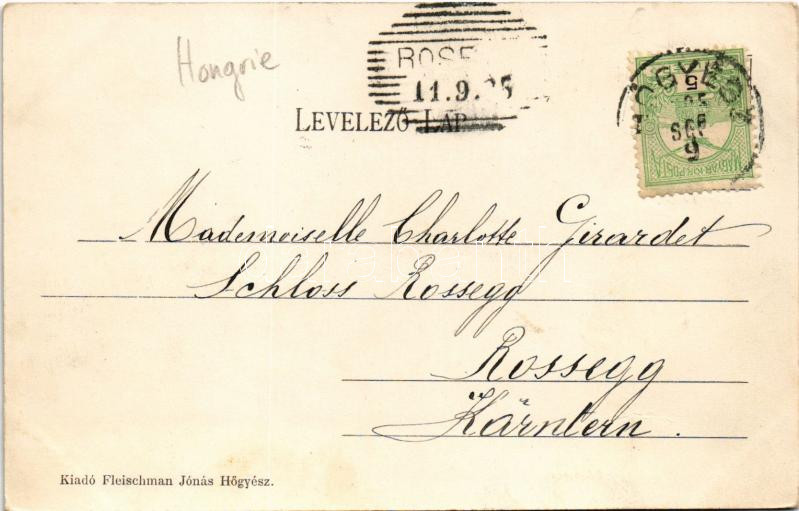 Hongrie
ROSE
11.9.05
LEVELEZŐ LAP
HŐGYÉSZ
5
05
SEP
9
MAGYAR KIR. POSTA
Mademoiselle Charlotte Girardet
Schloss Rossegg
Rossegg
Kärntern.
Kiadó Fleischman Jónás Hőgyész.